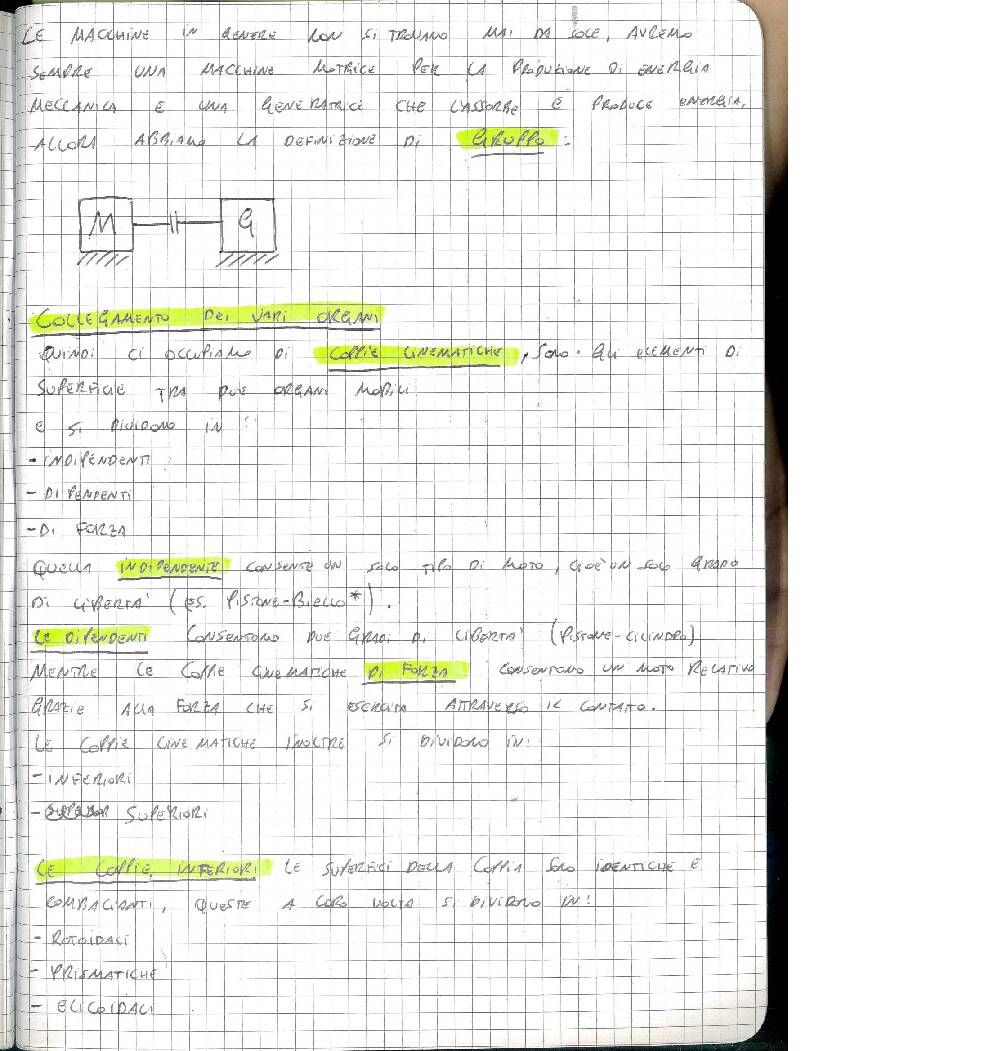 LE MACCHINE IN GENERE NON SI TROVANO MAI DA SOLE, AVREMO
SEMPRE UNA MACCHINE MOTRICE PER LA PRODUZIONE DI ENERGIA
MECCANICA E UNA GENERATRICE CHE L'ASSORBE E PRODUCE ENERGIA,
ALLORA ABBIAMO LA DEFINIZIONE DI GRUPPO:
M G
COLLEGAMENTO DEI VARI ORGANI
QUINDI CI OCCUPIAMO DI COPPIE CINEMATICHE, SONO GLI ELEMENTI DI
SUPERFICIE TRA DUE ORGANI MOBILI
E SI DIVIDONO IN:
- INDIPENDENTI
- DIPENDENTI
- DI FORZA
QUELLA INDIPENDENTE CONSENTE UN SOLO TIPO DI MOTO, CIOÈ UN SOLO GRADO
DI LIBERTA' (ES. PISTONE-BIELLO*).
LE DIPENDENTI CONSENTONO DUE GRADI DI LIBERTA' (PISTONE-CILINDRO)
MENTRE LE COPPIE CINEMATICHE DI FORZA CONSENTONO UN MOTO RELATIVO
GRAZIE ALLA FORZA CHE SI ESERCITA ATTRAVERSO IL CONTATTO.
LE COPPIE CINEMATICHE INOLTRE SI DIVIDONO IN:
- INFERIORI
- SUPERIORI
LE COPPIE INFERIORI LE SUPERFICI DELLA COPPIA SONO IDENTICHE E
COMBACIANTI, QUESTE A LORO VOLTA SI DIVIDONO IN:
- ROTOIDALI
- PRISMATICHE
- ELICOIDALI